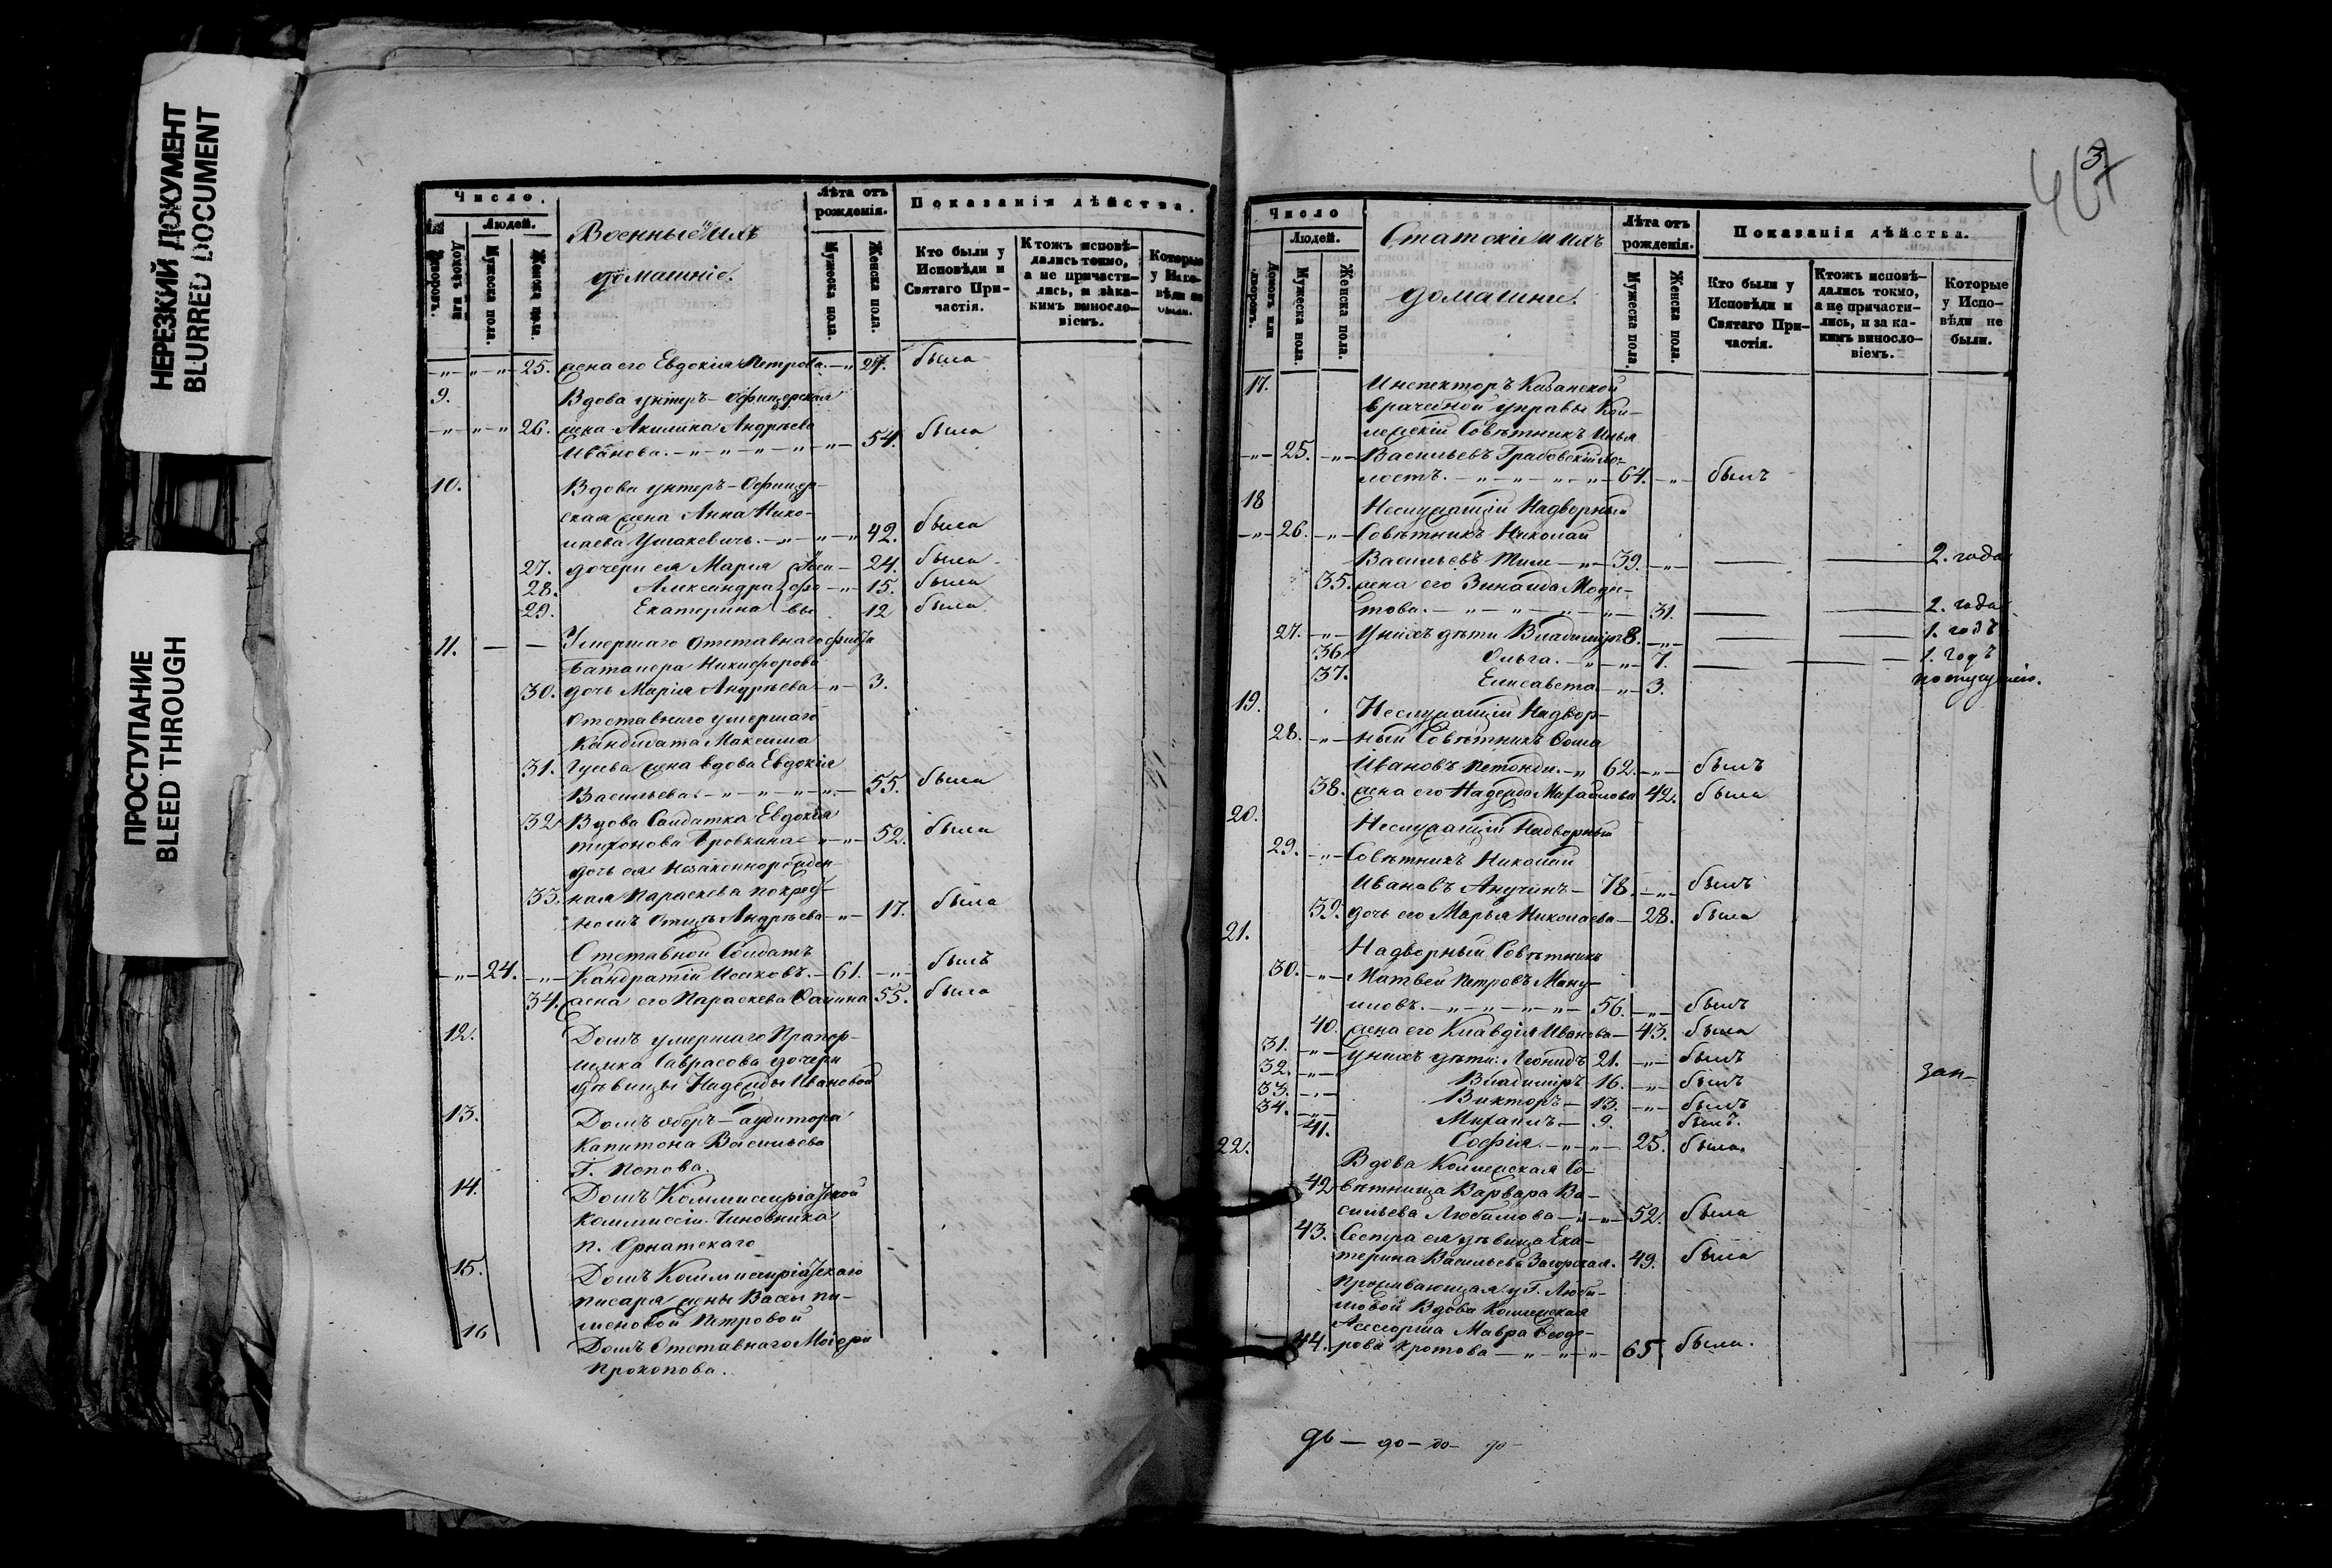 НЕРЕЗКИЙ ДОКУМЕНТ
BLURRED DOCUMENT
ПРОСТУПАНИЕ
BLEED THROUGH
Число.
Людей.
Домовъ или дворовъ.
Мужеска пола.
Женска пола.
Военные и ихъ
домашніе.
Лѣта отъ
рожденія.
Мужеска пола.
Женска пола.
Показанія дѣйства.
Кто были у
Исповѣди и
Святаго При-
частія.
Ктожъ исповѣ-
дались токмо,
а не причасти-
лись, и зака-
кимъ виносло-
віемъ.
Которые
у Испо-
вѣди не
были.
25. жена его Евдокія Петрова 27. была
9. Вдова унтеръ-Офицерская
26. жена Акилина Андрѣева
Иванова. 54. была
10. Вдова унтеръ-Офицер-
ская жена Анна Нико-
лаева 42. была
27. дочери ея Марія 24. была
28. Александра 15. была
29. Екатерина 12 была
11. Умершаго Отставнаго
Баталера Никифорова
30. дочь Марія Андрѣева 3.
Отставнаго умершаго
Кандидата Максима
31. жена вдова Евдокія
Васильева 55. была
32. Вдова Солдатка Евдокія
Тихонова Бровкина 52. была
дочь ея Незаконнорожден-
33. ная Параскева по крест-
номъ Отцѣ Андрѣева 17. была
Отставной Солдатъ
24. Кандратій Исаковъ. 61. былъ
34. жена его Параскева 55. была
12. Домъ умершаго Прапор-
щика Саврасова дочери
дѣвицы Надежды Ивановой
13. Домъ оберъ-аудитора
Капитона Васильева
Г. Попова.
14. Домъ Коммисаріатской
Коммиссіи Чиновника
п. Орнатскаго
15. Домъ Коммисаріатскаго
писаря жены Вассы Пи-
меновой Петровой
16 Домъ Отставнаго Маіора
Прокопова.
3
Число
Людей.
Домовъ или дворовъ.
Мужеска пола.
Женска пола.
Статскіе и ихъ
домашние.
Лѣта отъ
рожденія.
Мужеска пола.
Женска пола.
Показанія дѣйства.
Кто были у
Исповѣди и
Святаго При-
частія.
Ктожъ исповѣ-
дались токмо,
а не причасти-
лись, и за ка-
кимъ виносло-
віемъ.
Которые
у Испо-
вѣди не
были.
17. Инспекторъ Казанской
врачебной управы Кол-
лежскій Совѣтникъ Илья
25. Васильевъ Грабовскій
64. былъ
18 Неслужащій Надворный
26. Совѣтникъ Николай
Васильевъ 39. 2. года
35. жена его Зинаида Моде-
стова. 31. 2. года
27. у нихъ дѣти Владиміръ 8. 1. годъ
36 Ольга. 7. 1. годъ
37. Елисавета 3.
19. Неслужащій Надвор-
28. ный Совѣтникъ Ѳома
Ивановъ Петонди. 62. былъ
38. жена его Надежда Михайлова 42. была
20. Неслужащій Надворный
29. Совѣтникъ Николай
Ивановъ Анучинъ 78. былъ
39. дочь его Марья Николаева 28. была
21. Надворный Совѣтникъ
30. Матвей Петровъ Ману-
иловъ. 56. былъ
40. жена его Клавдія Иванова 43. была
31. у нихъ дѣти: Леонидъ 21. былъ
32. Владиміръ 16. былъ
33. Викторъ 13. былъ
34. Михаилъ 9. былъ.
41. Софія 25. была.
22. Вдова Коллежская Со-
42 вѣтница Варвара Ва-
сильева Любимова 52. была
43. Сестра ея дѣвица Ека-
терина Васильева Загорская. 49. была
Проживающая у Г. Люби-
мовой Вдова Коллежская
Ассесорша Мавра Ѳеодо-
44. рова Кротова 65. была.